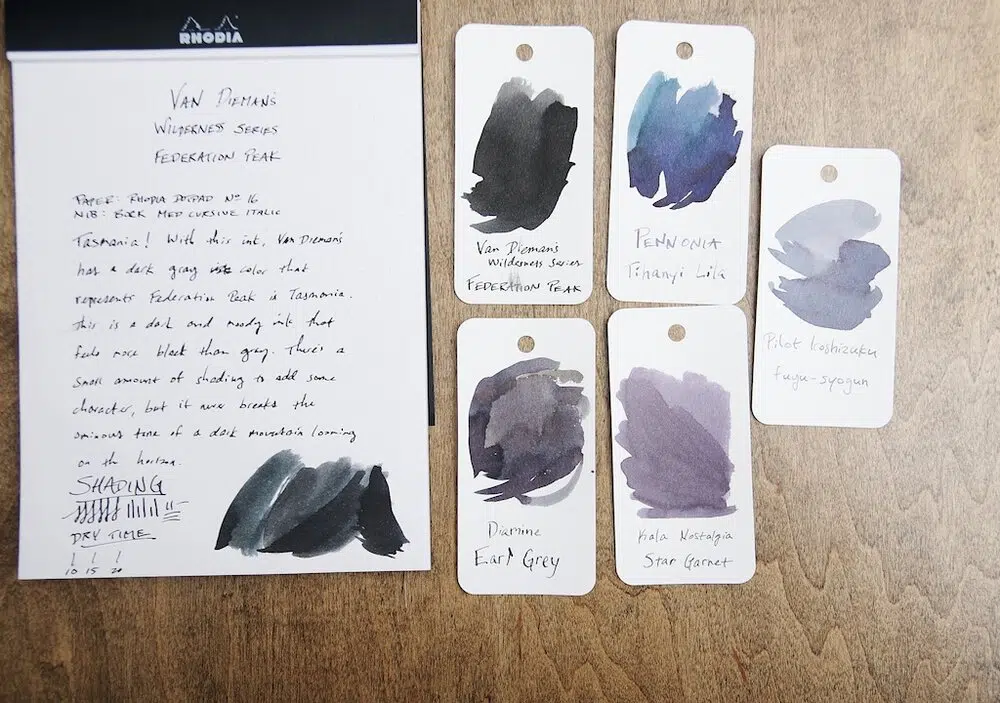 RHODIA
VAN DIEMAN'S
WILDERNESS SERIES
FEDERATION PEAK
PAPER: RHODIA DOTPAD Nº 16
NIB: BOCK MED CURSIVE ITALIC
Tasmania! With this ink, Van Dieman's
has a dark gray color that
represents Federation Peak in Tasmania.
This is a dark and moody ink that
feels more black than gray. There's a
small amount of shading to add some
character, but it never breaks the
ominous tone of a dark mountain looming
on the horizon.
SHADING
DRY TIME
10 15 20
Van Dieman's
Wilderness Series
FEDERATION PEAK
PENNONIA
Tihanyi Lila
Pilot Iroshizuku
fuyu-syogun
Diamine
Earl Grey
Kala Nostalgia
Star Garnet